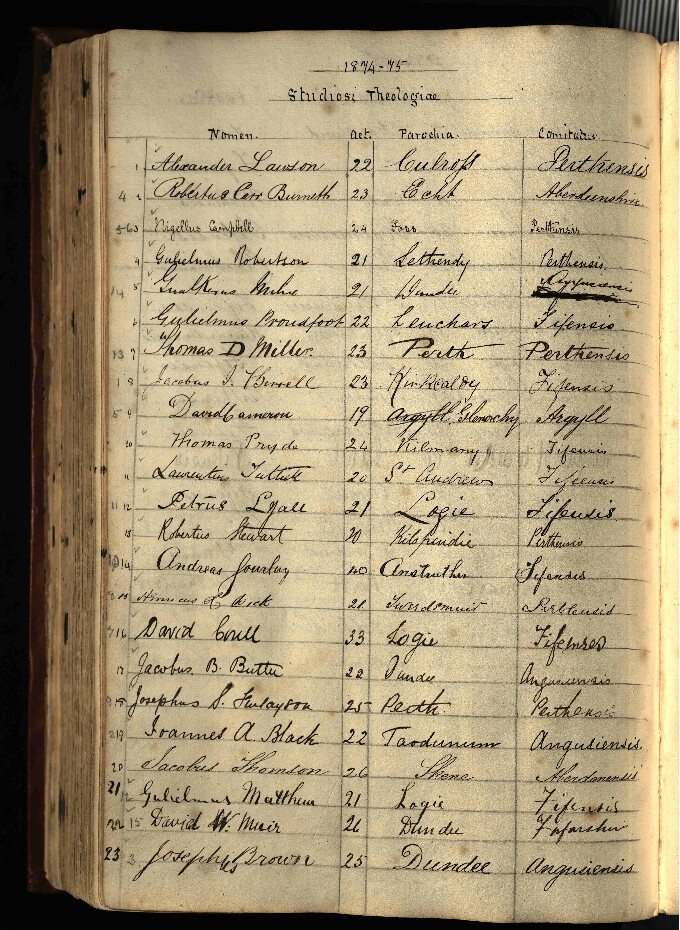 1874-75
Studiosi Theologiae
Nomen. Aet. Parochia. Comitatus.
1 Alexander Lawson 22 Culross Perthensis
4 2 Robertus Carr Burnett 23 Echt Aberdeenshire
3 Nigellus Campbell 24 Perthensis
4 Gulielmus Robertson 21 Lethendy Perthensis
14 5 Gualterus Milne 21 Dundee
6 Gulielmus Proudfoot 22 Leuchars Fifensis
13 7 Thomas D Miller. 23 Perth Perthensis
1 8 Jacobus J. Birrell 23 Kirkcaldy Fifensis
5 9 David Cameron 19 Argyll, Glenorchy Argyll
10 Thomas Pryde 24 Kilmany Fifensis
11 Laurentius Tuttiett 20 St Andrews Fifensis
11 12 Petrus Lyall 21 Logie Fifensis
13 Robertus Stewart 20 Kilspindie Perthensis
14 Andreas Gourlay 40 Anstruther Fifensis
15 Henricus 21 Tweedsmuir Peeblensis
16 David Coull 33 Logie Fifensis
17 Jacobus. B. Butter 22 Dundee Angusiensis
18 Josephus S. Finlayson 25 Perth. Perthensis
19 Ioannes A. Black 22 Taodunum Angusiensis.
20 Jacobus Thomson 26 Skene Aberdonensis
21 Gulielmus Matthew 21 Logie Fifensis
22 15 David W. Muir 21 Dundee Forfarshire
23 3 Josephus Brown 25 Dundee Angusiensis